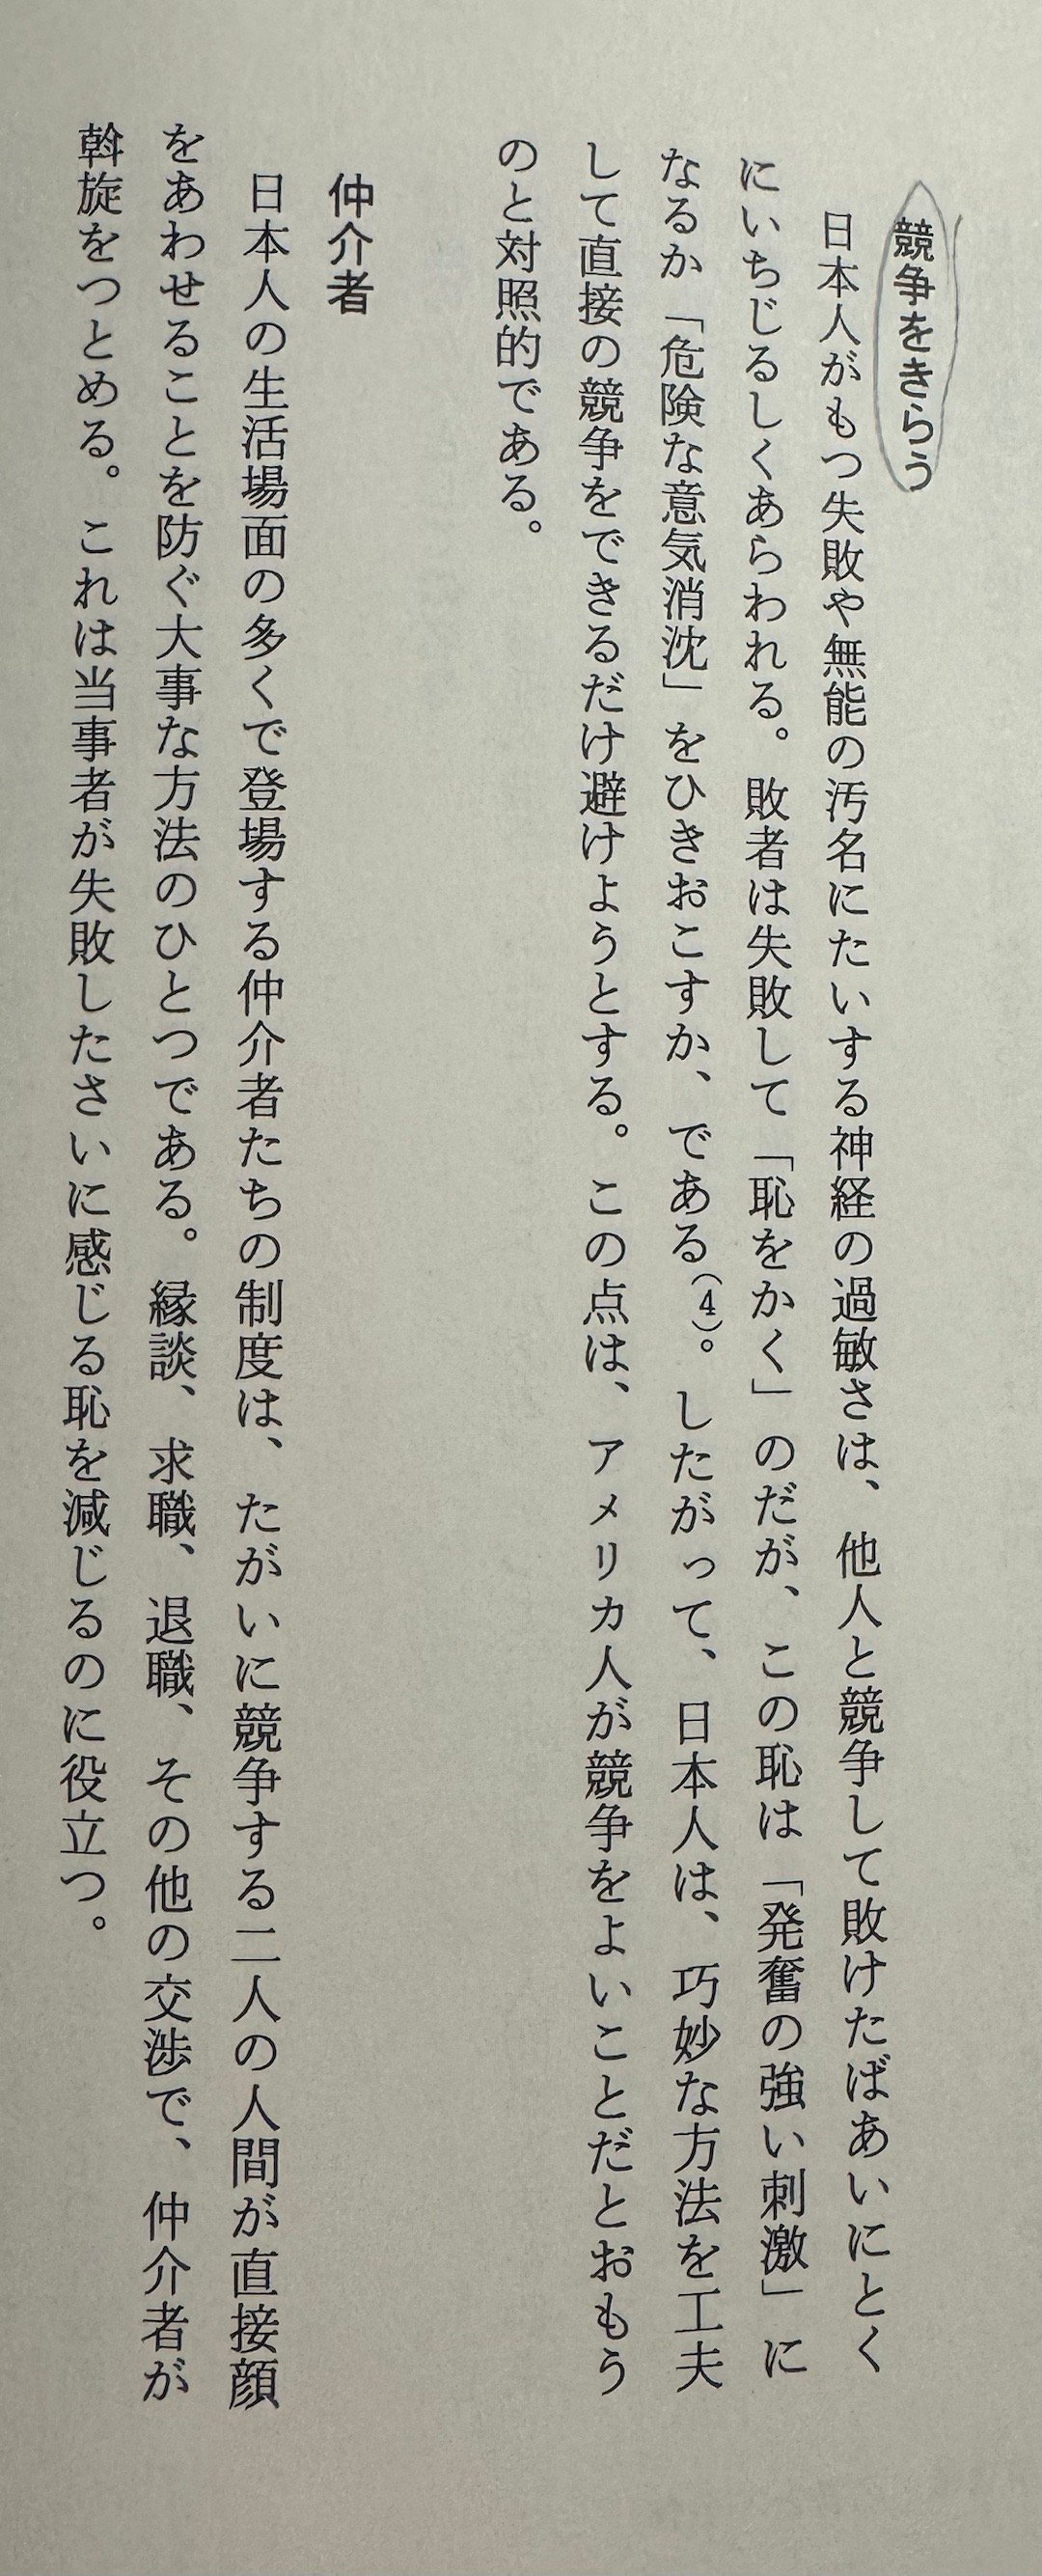 競争をきらう
日本人がもつ失敗や無能の汚名にたいする神経の過敏さは、他人と競争して敗けたばあいにとく
にいちじるしくあらわれる。敗者は失敗して「恥をかく」のだが、この恥は「発奮の強い刺激」に
なるか「危険な意気消沈」をひきおこすか、である(4)。したがって、日本人は、巧妙な方法を工夫
して直接の競争をできるだけ避けようとする。この点は、アメリカ人が競争をよいことだとおもう
のと対照的である。
仲介者
日本人の生活場面の多くで登場する仲介者たちの制度は、たがいに競争する二人の人間が直接顔
をあわせることを防ぐ大事な方法のひとつである。縁談、求職、退職、その他の交渉で、仲介者が
斡旋をつとめる。これは当事者が失敗したさいに感じる恥を減じるのに役立つ。